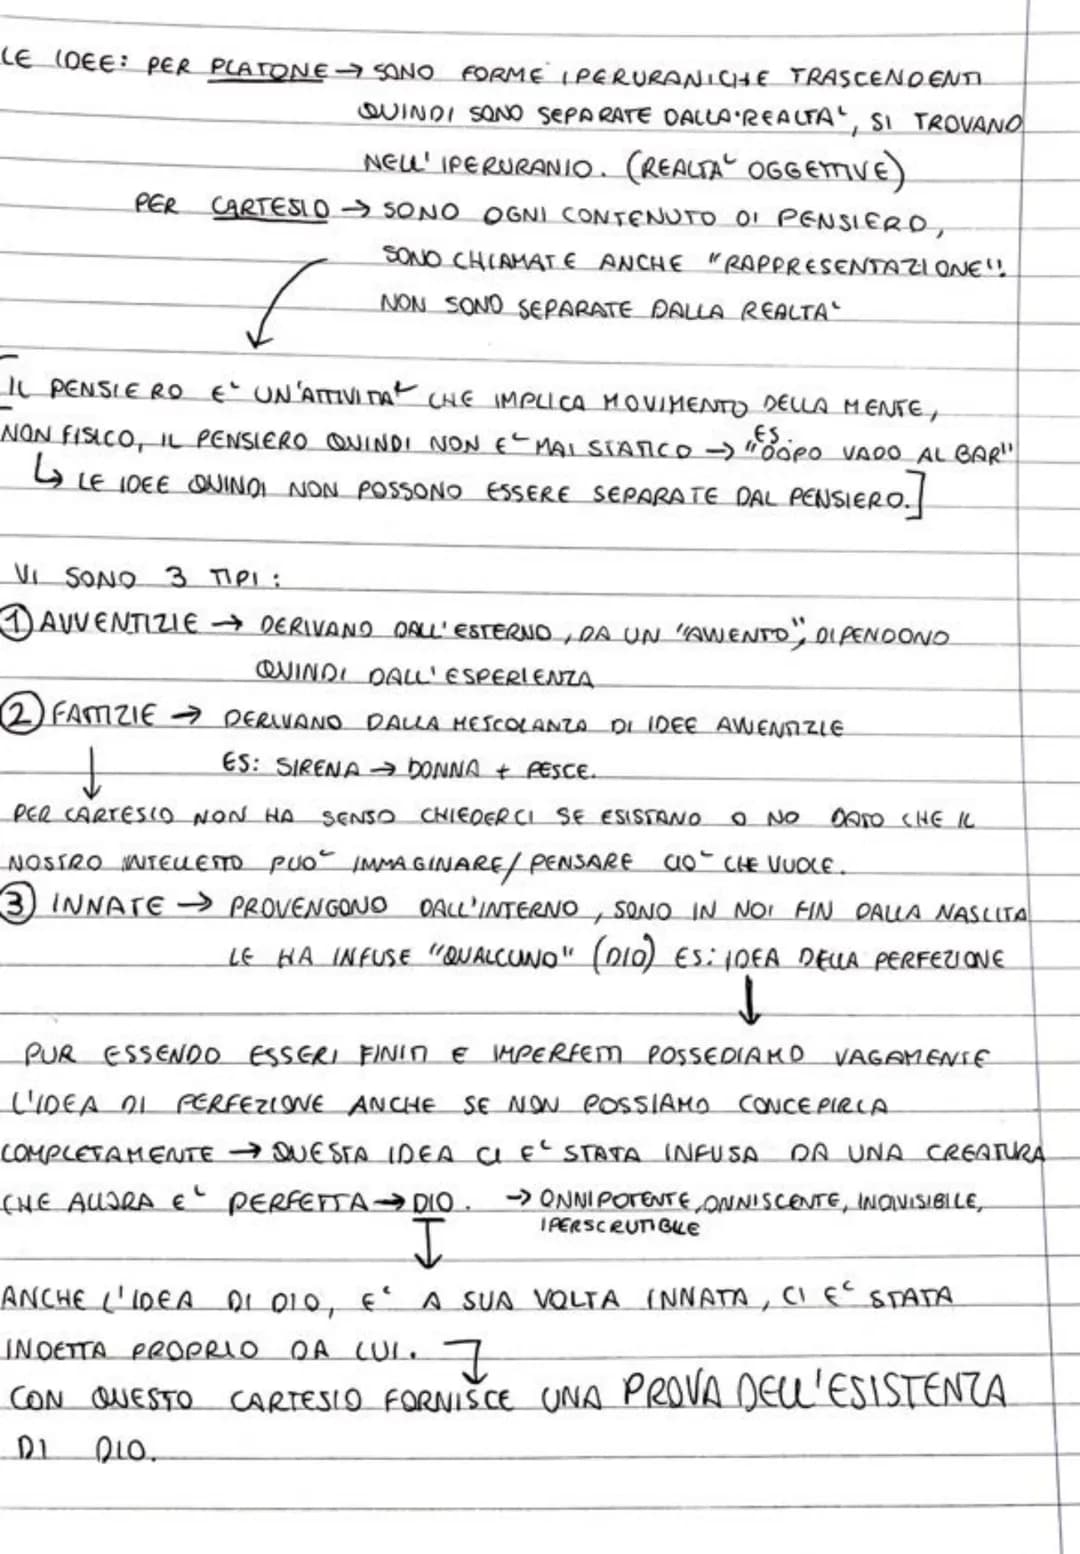 LE IDEE: PER PLATONE → SONO FORME IPERURANICHE TRASCENDENTI
QUINDI SONO SEPARATE DALLA REALTA', SI TROVANO
NELL'IPERURANIO. (REALTA' OGGETTIVE)
PER CARTESIO → SONO OGNI CONTENUTO DI PENSIERO,
SONO CHIAMATE ANCHE "RAPPRESENTAZIONE".
NON SONO SEPARATE DALLA REALTA'
[IL PENSIERO E' UN'ATTIVITA' CHE IMPLICA MOVIMENTO DELLA MENTE,
NON FISICO, IL PENSIERO QUINDI NON E' MAI STATICO → ES. "DOPO VADO AL BAR"
↳ LE IDEE QUINDI NON POSSONO ESSERE SEPARATE DAL PENSIERO.]
VI SONO 3 TIPI:
1 AVVENTIZIE → DERIVANO DALL'ESTERNO, DA UN "AVVENTO", DIPENDONO
QUINDI DALL'ESPERIENZA
2 FATTIZIE → DERIVANO DALLA MESCOLANZA DI IDEE AVVENTIZIE
ES: SIRENA → DONNA + PESCE.
PER CARTESIO NON HA SENSO CHIEDERCI SE ESISTANO O NO DATO CHE IL
NOSTRO INTELLETTO PUO' IMMAGINARE/PENSARE CIO' CHE VUOLE.
3 INNATE → PROVENGONO DALL'INTERNO, SONO IN NOI FIN DALLA NASCITA
LE HA INFUSE "QUALCUNO" (DIO) ES: IDEA DELLA PERFEZIONE
PUR ESSENDO ESSERI FINITI E IMPERFETTI POSSEDIAMO VAGAMENTE
L'IDEA DI PERFEZIONE ANCHE SE NON POSSIAMO CONCEPIRLA
COMPLETAMENTE → QUESTA IDEA CI E' STATA INFUSA DA UNA CREATURA
CHE ALLORA E' PERFETTA → DIO. → ONNIPOTENTE, ONNISCENTE, INQUISIBILE,
IPERSCRUTIBILE
ANCHE L'IDEA DI DIO, E' A SUA VOLTA INNATA, CI E' STATA
INDETTA PROPRIO DA LUI.
CON QUESTO CARTESIO FORNISCE UNA PROVA DELL'ESISTENZA
DI DIO.